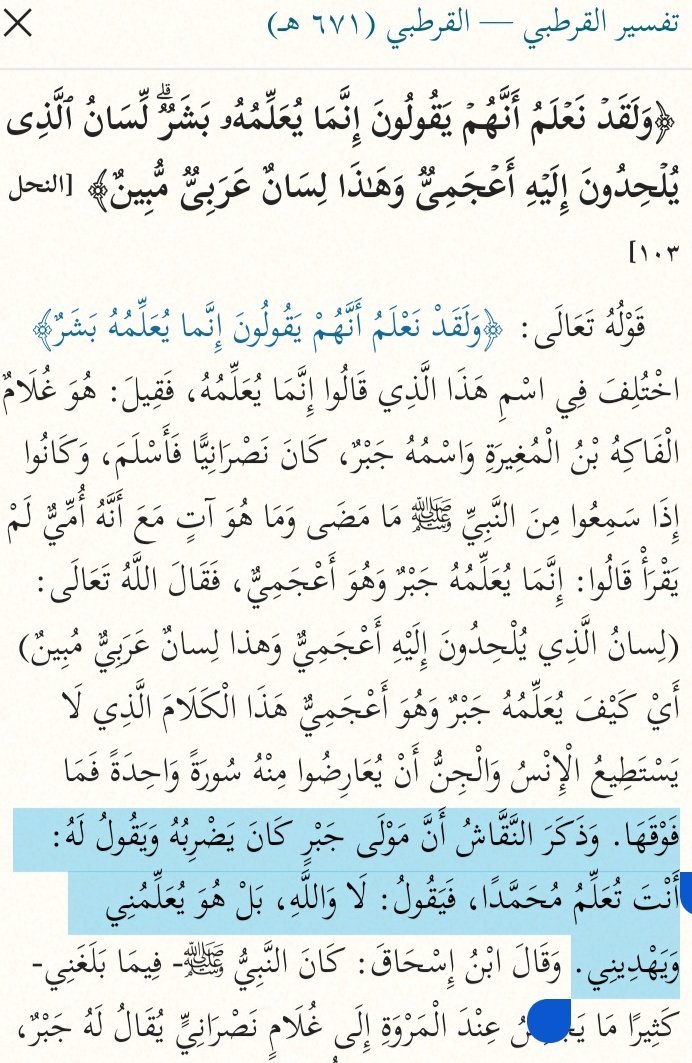 تفسير القرطبي — القرطبي (٦٧١ هـ)
﴿وَلَقَدۡ نَعۡلَمُ أَنَّهُمۡ يَقُولُونَ إِنَّمَا يُعَلِّمُهُۥ بَشَرࣱۗ لِّسَانُ ٱلَّذِی
یُلۡحِدُونَ إِلَیۡهِ أَعۡجَمِیࣱّ وَهَـٰذَا لِسَانٌ عَرَبِیࣱّ مُّبِینٌ﴾ [النحل
١٠٣]
قَوْلُهُ تَعَالَى: ﴿وَلَقَدْ نَعْلَمُ أَنَّهُمْ يَقُولُونَ إِنَّما يُعَلِّمُهُ بَشَرٌ﴾
اخْتُلِفَ فِي اسْمِ هَذَا الَّذِي قَالُوا إِنَّمَا يُعَلِّمُهُ، فَقِيلَ: هُوَ غُلَامٌ
الْفَاكِهُ بْنُ الْمُغِيرَةِ وَاسْمُهُ جَبْرٌ، كَانَ نَصْرَانِيًّا فَأَسْلَمَ، وَكَانُوا
إِذَا سَمِعُوا مِنَ النَّبِيِّ ﷺ مَا مَضَى وَمَا هُوَ آتٍ مَعَ أَنَّهُ أُمِّيٌّ لَمْ
يَقْرَأْ قَالُوا: إِنَّمَا يُعَلِّمُهُ جَبْرٌ وَهُوَ أَعْجَمِيٌّ، فَقَالَ اللَّهُ تَعَالَى:
(لِسانُ الَّذِي يُلْحِدُونَ إِلَيْهِ أَعْجَمِيٌّ وَهذا لِسانٌ عَرَبِيٌّ مُبِينٌ)
أَيْ كَيْفَ يُعَلِّمُهُ جَبْرٌ وَهُوَ أَعْجَمِيٌّ هَذَا الْكَلَامَ الَّذِي لَا
يَسْتَطِيعُ الْإِنْسُ وَالْجِنُّ أَنْ يُعَارِضُوا مِنْهُ سُورَةً وَاحِدَةً فَمَا
فَوْقَهَا. وَذَكَرَ النَّقَّاشُ أَنَّ مَوْلَى جَبْرٍ كَانَ يَضْرِبُهُ وَيَقُولُ لَهُ:
أَنْتَ تُعَلِّمُ مُحَمَّدًا، فَيَقُولُ: لَا وَاللَّهِ، بَلْ هُوَ يُعَلِّمُنِي
وَيَهْدِينِي. وَقَالَ ابْنُ إِسْحَاقَ: كَانَ النَّبِيُّ ﷺ- فِيمَا بَلَغَنِي-
كَثِيرًا مَا عِنْدَ الْمَرْوَةِ إِلَى غُلَامٍ نَصْرَانِيٍّ يُقَالُ لَهُ جَبْرٌ،